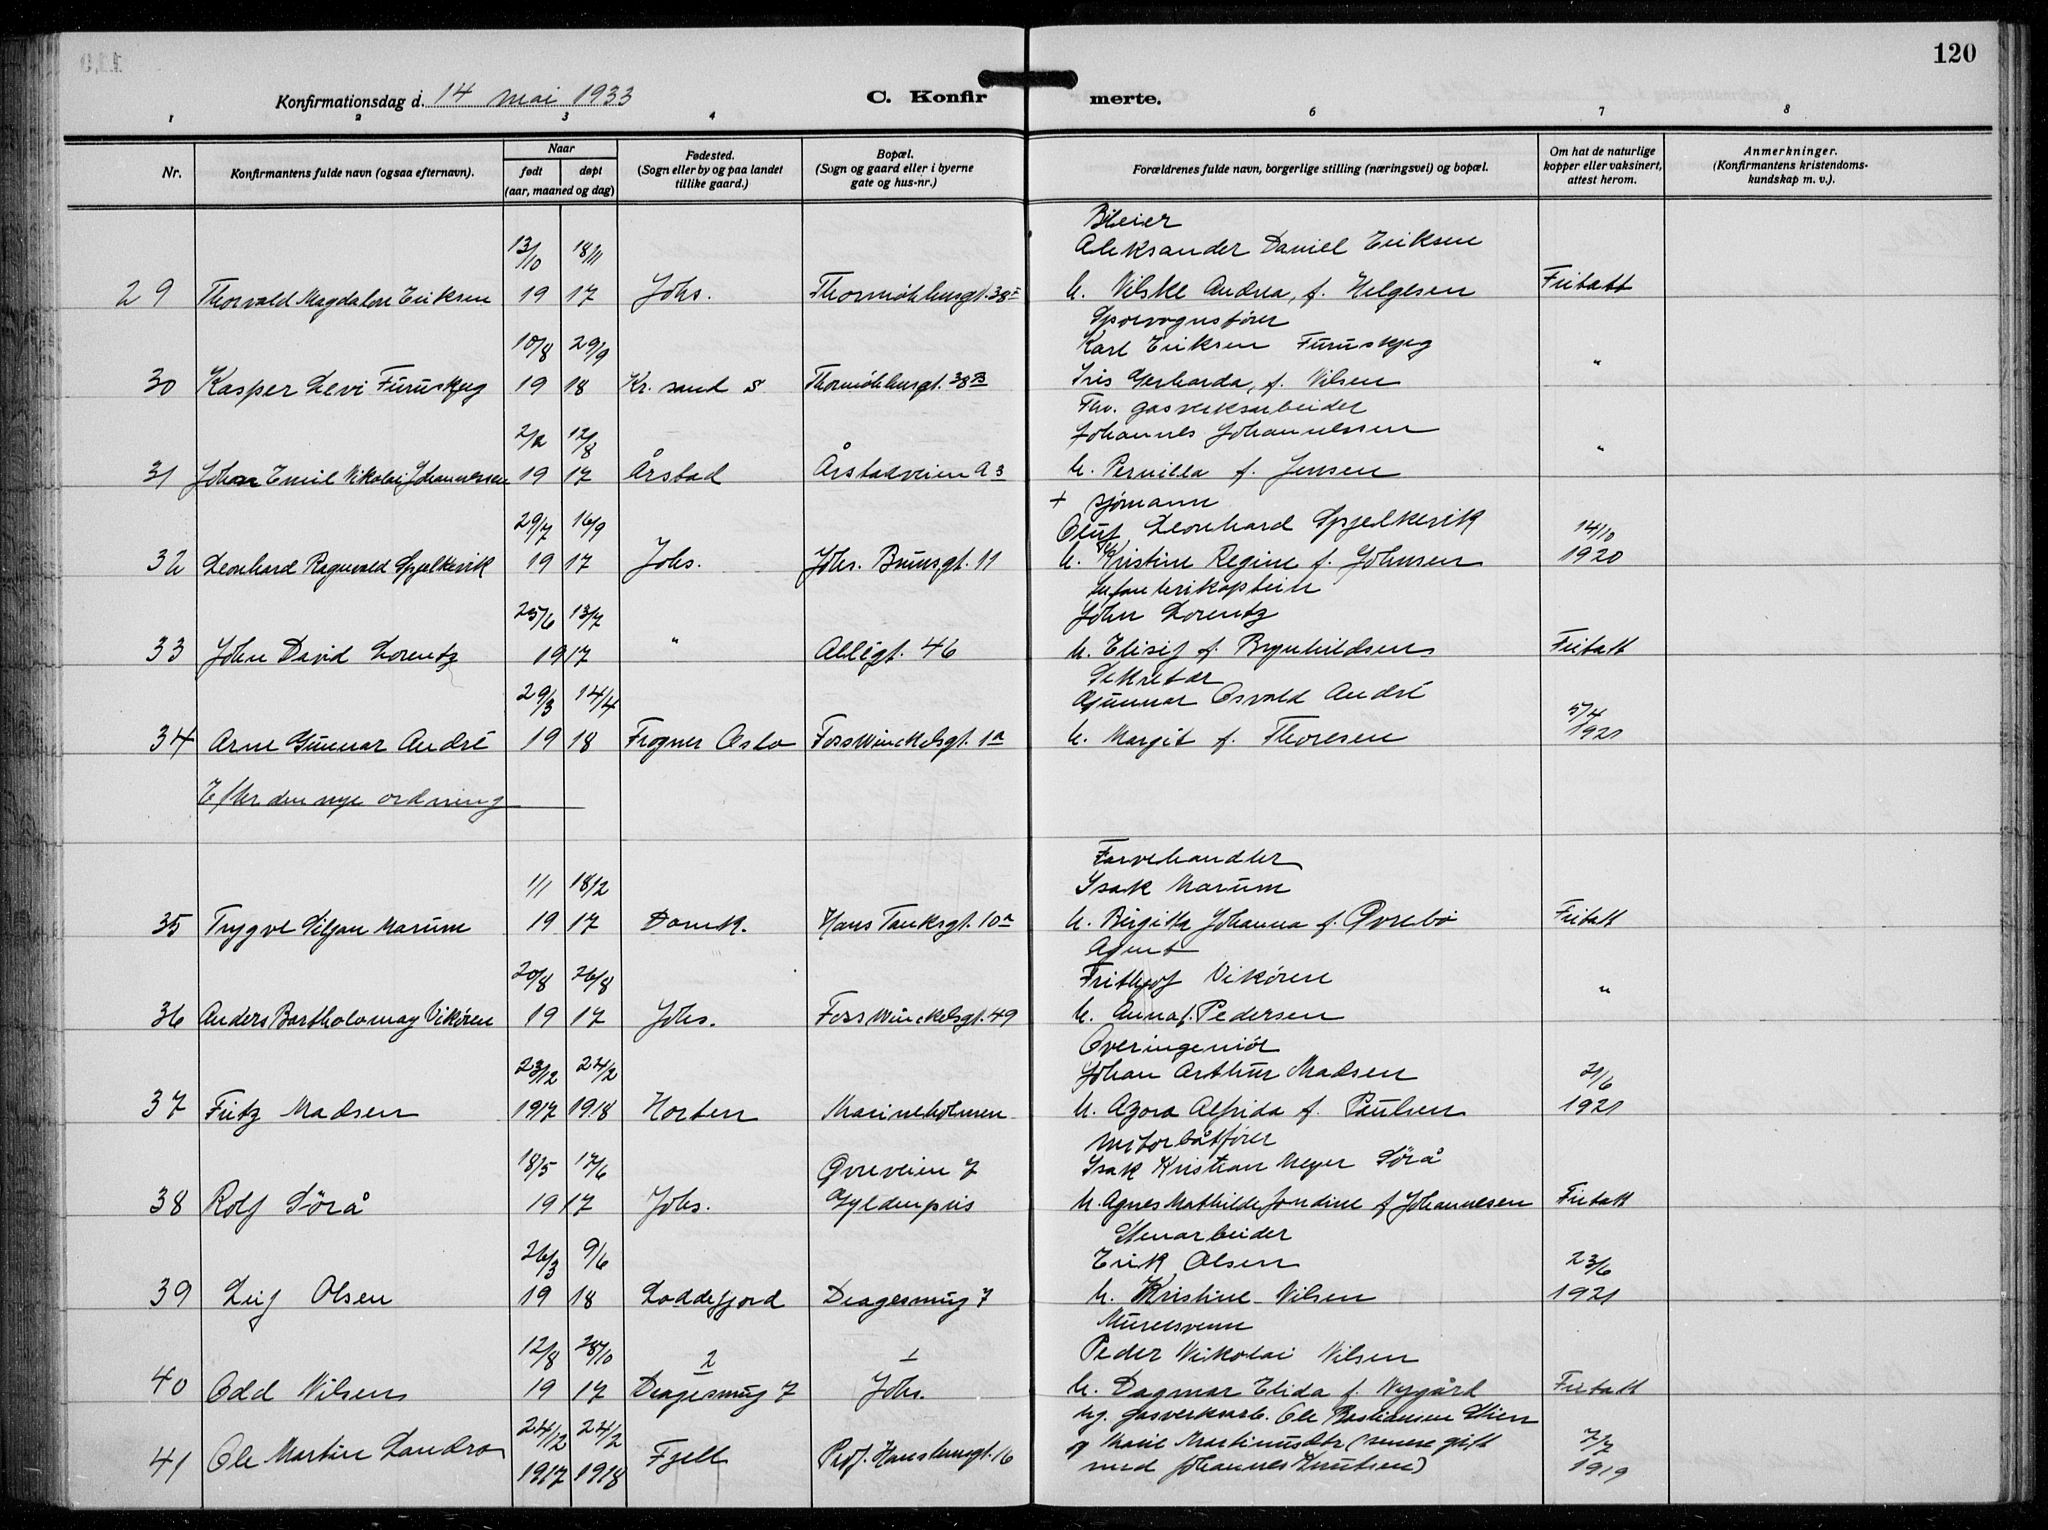 120
Konfirmationsdag d. 14 mai 1933
C. Konfir merte.
1 2 3 4 6 7 8
Nr.
Konfirmantens fulde navn (ogsaa efternavn).
Naar
født døpt
(aar, maaned og dag)
Fødested.
(Sogn eller by og paa landet
tillike gaard.)
Bopæl.
(Sogn og gaard eller i byerne
gate og hus-nr.)
Forældrenes fulde navn, borgerlige stilling (næringsvei) og bopæl.
Om hat de naturlige
kopper eller vaksinert,
attest herom.
Anmerkninger.
(Konfirmantens kristendoms-
kundskap m. v.).
Aleksander Daniel Eriksen
13/10 18/11
29 Thorvald Magdalon Eriksen 19 17 Johs. Thormøhlensgt. 38 u. Andrea, f. Helgesen Fritatt
Sporvognsfører
10/8 29/9 Karl Eriksen Furuskjeg
30 Kasper Levi Furuskjeg 19 18 Kr. sand S. Thormøhlensgt. 38B Iris Gerharda, f. Nilsen "
Fhv. gasverksarbeider
2/2 12/8 Johannes Johannessen
31 Johan Emil Nikolai Johannessen 19 17 Årstad Årstadveien a 3 u. Pernilla f. Jensen "
+ sjømann
29/7 16/9 Oluf Leonhard Spjelkevik 14/10
32 Leonhard Ragnvald Spjelkevik 19 17 Johs. Johs. Brunsgt. 11 u. Kristine Regine f. Johnsen 1920
Infanterikaptein
25/6 13/7 John Lorentz
33 John David Lorentz 1917 " Allégt. 46 u. Elisif f. Brynhildsen Fritatt
Sekretær
29/3 14/4 Gunnar Osvald André 5/4
34 Arne Gunnar André 19 18 Frogner Oslo Fosswinckelsgt. 1a u. Margit f. Thoresen 1921
Efter den nye ordning
Farvehandler
1/1 18/2 Isak Marum
35 Trygve Siljan Marum 19 17 Domk. Hans Tanksgt. 10a u. Birgitte Johanna f. Øvrebø Fritatt
Agent
20/8 26/8 Frithjof Vikøren
36 Anders Bartholomay Vikøren 19 17 Johs. Fosswinckelsgt. 49 u. Anna f. Pedersen "
Overingeniør
23/12 24/2 Johan Arthur Madsen 21/6
37 Fritz Madsen 1917 1918 Horten Marineholmen u. Agora Alfrida f. Paulsen 1921
Motorbåtfører
18/5 17/6 Øvreveien 7 Isak Kristian Meyer Sørå
38 Rolf Sørå 1917 Johs. Gyldenpris u. Agnes Mathilde Jondine f. Johannesen Fritatt
Stenarbeider
26/3 9/6 Erik Olsen 23/6
39 Leif Olsen 19 18 Loddefjord Dragesmug 7 u. Kristine Nilsen 1921
Murersvenn
12/8 28/10 2 1 Peder Nikolai Nilsen
40 Odd Nilsen 19 17 Dragesmug 7 Johs. u. Dagmar Elida f. Nygård Fritatt
Ug. gasverksarb. Ole Bastiansen Stien
24/12 24/2 og Marie Martinusdtr. (senere gift 7/7
41 Ole Martin Landro 1917 1918 Fjell Prof. Hansteensgt. 16 med Johannes Knutsen) 1919